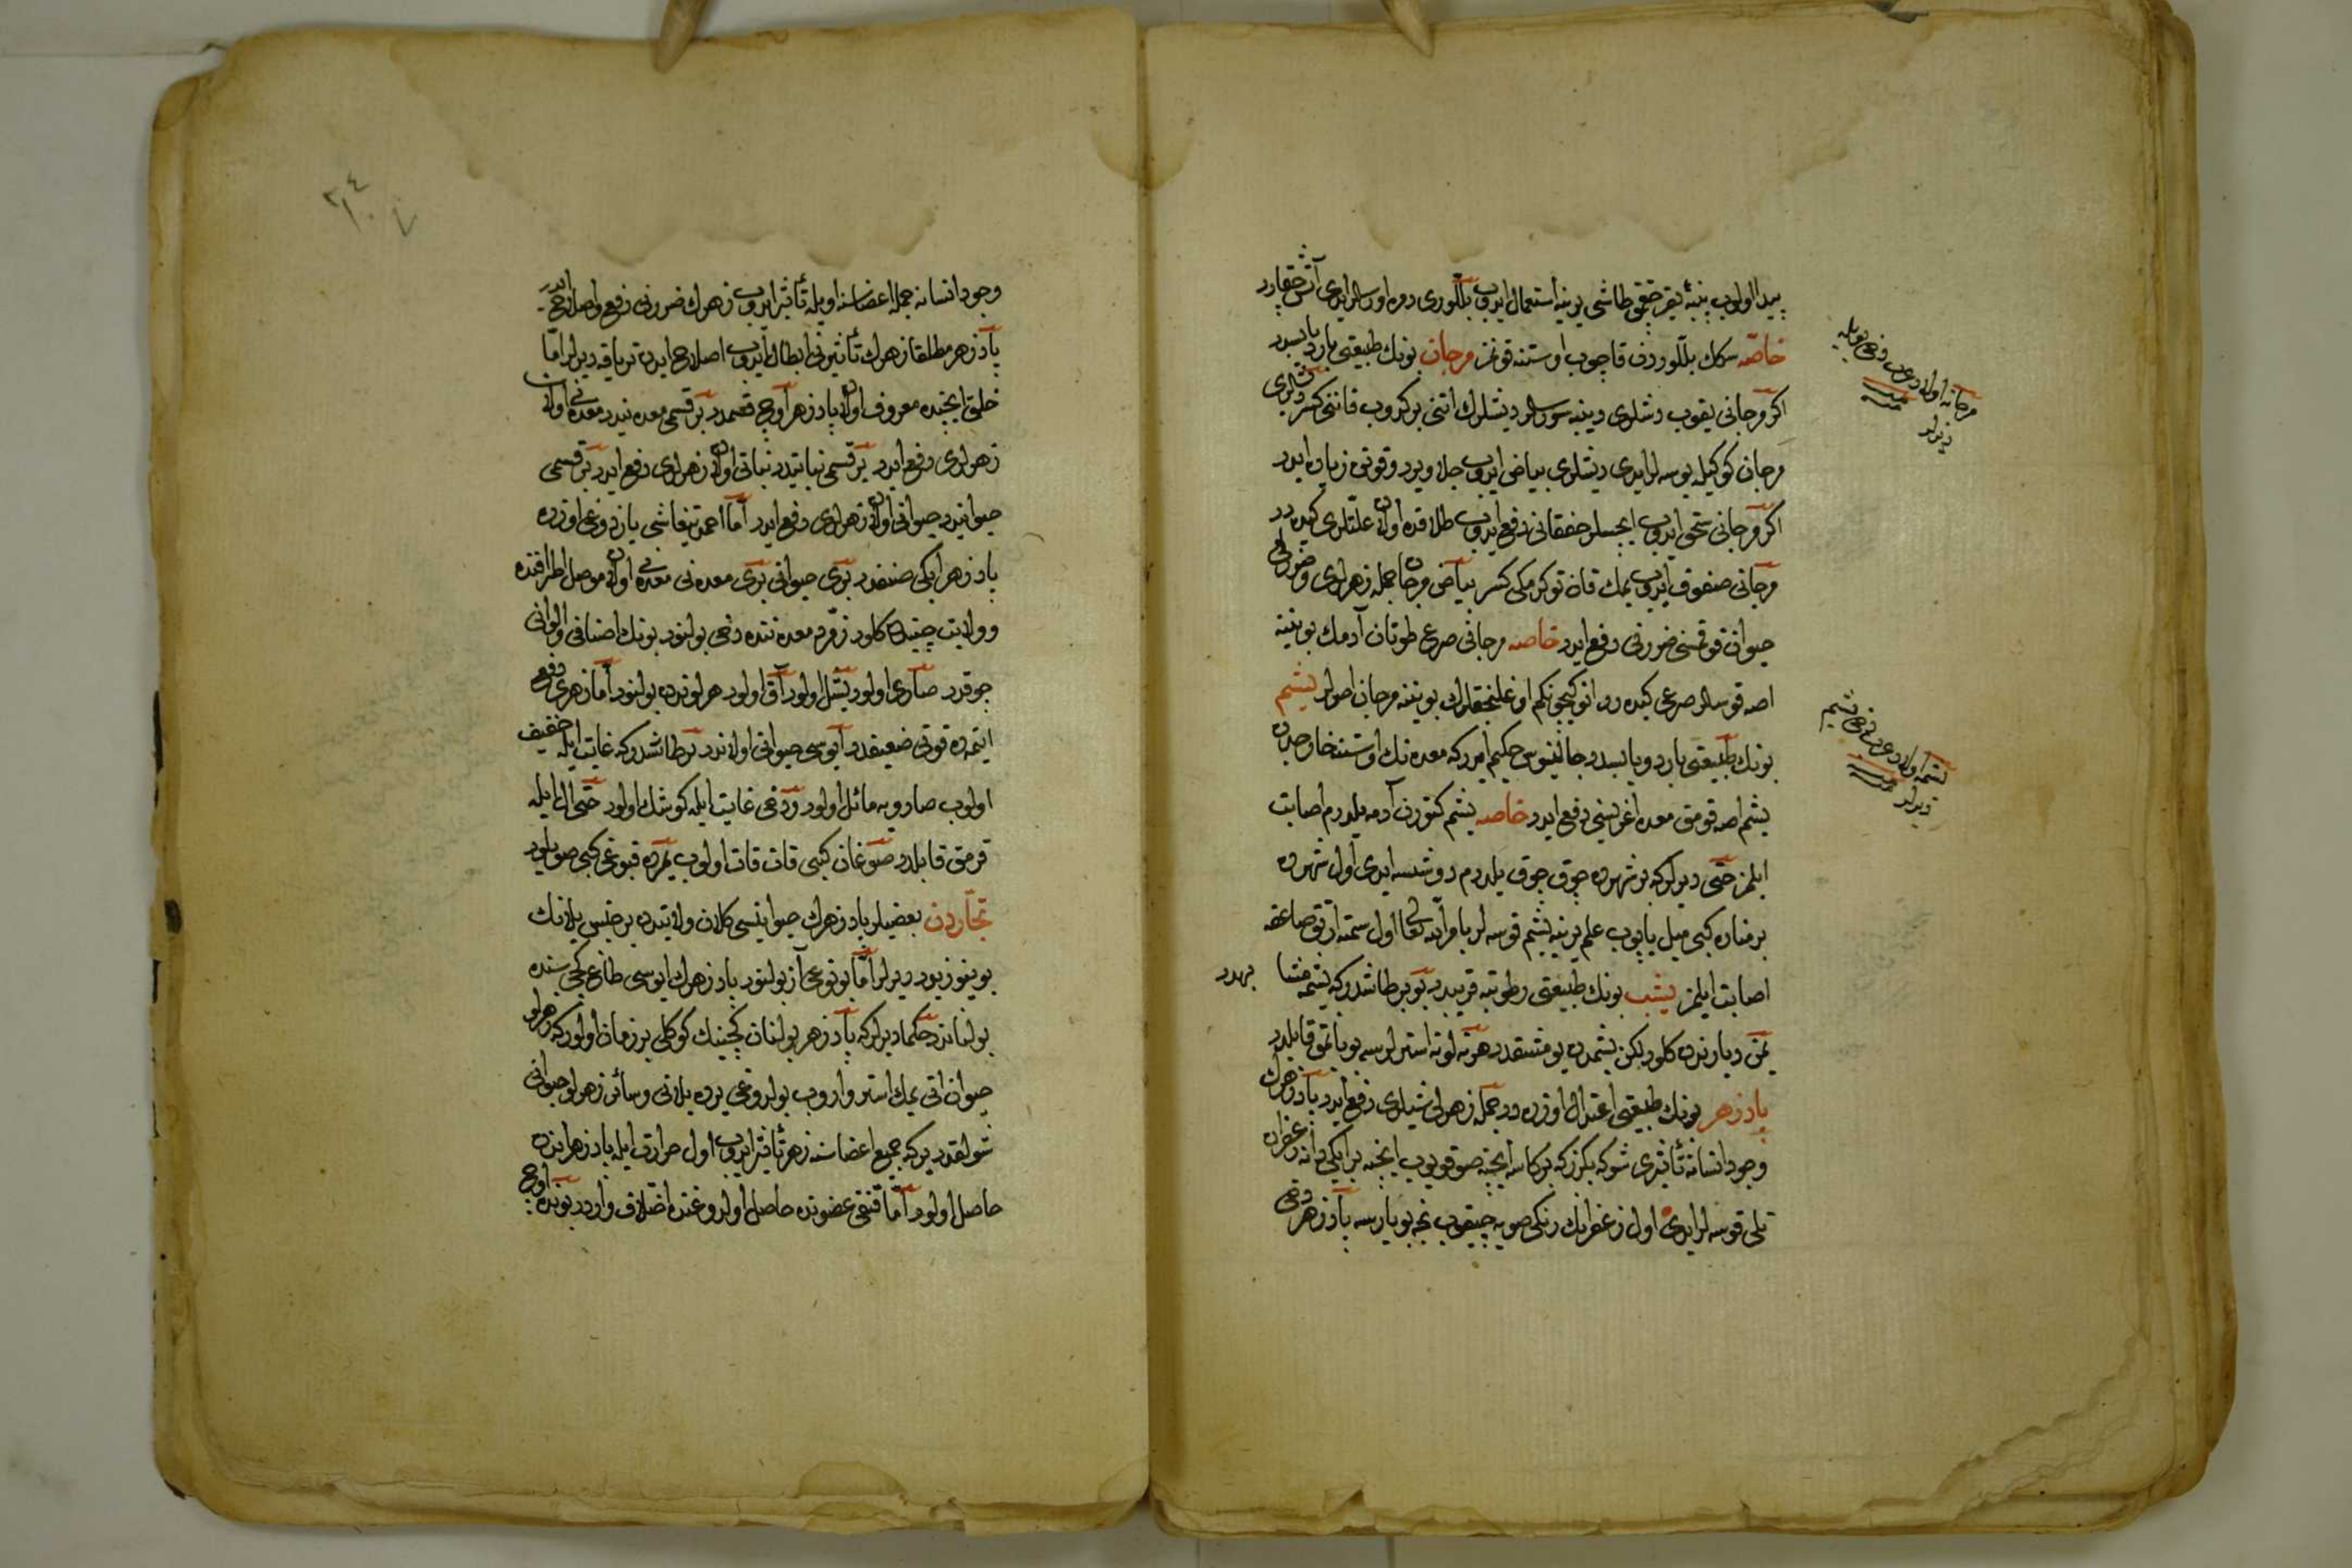 پیدا اولوب پنبه‌ئه یقر چقمق طاشی یرینه استعمال ایدوب بلّوری دوه اورسالر ایدی آتش چقارر
خاصّه سکك بلّوردن قاچوب اوستنه قونمز مرجان بونك طبیعتی بارد یابسدر
اکر مرجانی یقوب دشلری دیبنه سورسه‌لر دیشلرك اتنی برکدوب قاننی کسر دیشلری
مرجان کوکیله یوسه‌لر ایدی دیشلری بیاض ایدوب جلا ویرر وقوتی زیاده ایدر
اکر مرجانی سحق ایدوب ایچسلر خفقانی دفع ایدوب طلاقده اولان علتلری کیدرر
مرجانی سفوف ایدوب یمك قان توکرمکی کسر بیاض مرجان جمله زهرلری وضررلی
حیوان قوقسی ضررنی دفع ایدر خاصه مرجانی صرع طوتان آدمك بوینینه
اصه قوسه‌لر صرعی کیده رر انوکیچونکم اوغلنجقلرك بویننه مرجان اصرلر یشم
بونك طبیعتی بارد ویابسدر جالینوس حکیم ایدرکه معده‌نك اوستنه خارجدن
یشم اصه قومق معده اغریسنی دفع ایدر خاصه یشم کتورن آدمه یلدرم اصابت
ایلمز حتی دیرلرکه بر شهرده چوق چوق یلدرم دوشسه ایدی اول شهرده
بر مناره کبی میل یاپوب علم یرینه یشم قوسه‌لر بامرالله تعالی اول سمته ارتق صاعقه
اصابت ایلمز یشب بونك طبیعتی رطوبته قریبدر بو بر طاشدرکه یشمه مشابهدر
یمن دیارندن کلور لکن یشمدن یومشقدر هر نه لونه استرلرسه بویاتمق قابلدر
پادزهر بونك طبیعتی اعتدال اوزره در جمله زهرلی شیلری دفع ایدر پادزهرك
وجود انسانه تأثیری شوکه بکزرکه بر کاسه ایچنه صو قویوب ایچنه بر ایکی دانه زعفران
تلی قوسه‌لر ایدی اول زعفرانك رنکی صویه چیقوب نجه بویارسه پادزهر دخی
مرجانه اولاد عرب دخی
دیرلر
یشمه اولاد عرب دخی یشیم
دیرلر
وجود انسانه جمله اعضاسنه اویله تأثیر ایدوب زهرك ضررنی دفع واصلاح ایدر
پادزهر مطلقا زهرك تأثیرنی ابطال ایدوب اصلاح ایدن تریاقه دیرلر امّا
خلق ایچنده معروف اولان پادزهر اوچ قسمدر بر قسمی معدنیدر معدنی اولان
زهرلری دفع ایدر بر قسمی نباتیدر نباتی اولان زهرلری دفع ایدر بر قسمی
حیوانیدر حیوانی اولان زهرلری دفع ایدر امّا احمد تیفاشی یازدوغی اوزره
پادزهر ایکی صنفدر بری حیوانی بری معدنی معدنی اولان موصل اطرافنده
وولایت چیندن کلور زمرّد معدننده دخی بولنور بونك اصنافی والوانی
چوقدر صاری اولور یشل اولور آق اولور هر لوندن بولنور امّا زهری دفع
ایتمده قوتی ضعیفدر ایوسی حیوانی اولاندر بر طاشدرکه غایت ایله خفیف
اولوب صارویه مائل اولور ودخی غایت ایله کوشك اولور حتی ال ایله
قرمق قابلدر صوغان کبی قات قات اولوب قبوغی کبی صویلور
تجاردن بعضیلر پادزهرك حیوانیسی کلان ولایتدن بر جنس یلانك
بوینوزیدر دیرلر امّا بو نوعی آز بولنور پادزهرك ایوسی طاغ کچیسنده
بولناندر حکما دیرلرکه پادزهر بولنان کچینك کوکلی بر زمان اولورکه زهرلو
حیوان اتی یمك استر واروب بولدوغی یرده یلانی وسائر زهرلو حیوانی
شولقدر یرکه جمیع اعضاسنه زهر تأثیر ایدوب اول حرارت ایله پادزهر انده
حاصل اولور امّا قنغی عضونده حاصل اولدوغنده اختلاف واردر بونده اوچ